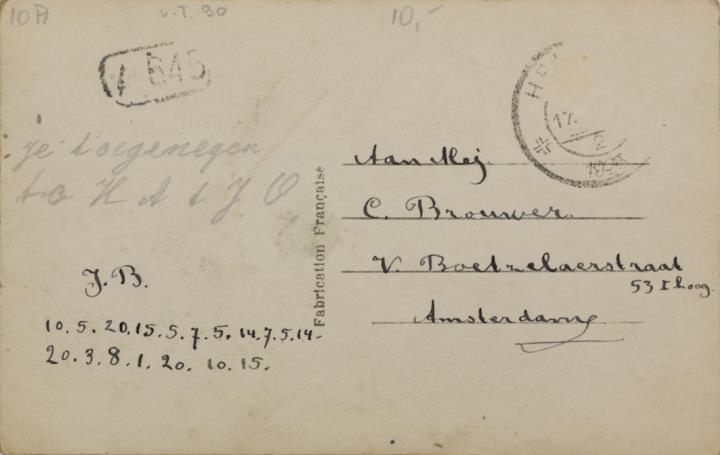 v.T. 90
10,-
B45
HE
17.
2
je toegenegen
to H A t J O
J. B.
10. 5. 20. 15. 5. 7. 5. 14. 7. 5. 14.
20. 3. 8. 1. 20. 10. 15.
Fabrication Française
Aan Mej.
C. Brouwer.
V. Boetzelaerstraat
53 I hoog.
Amsterdam